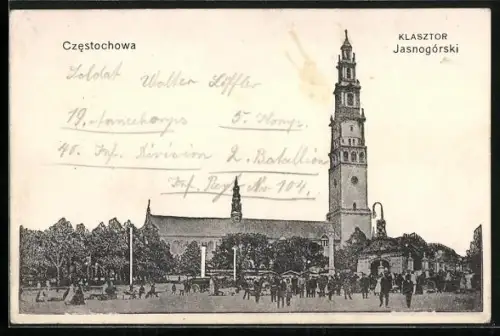 Częstochowa
KLASZTOR
Jasnogórski
Soldat Walter Löffler
19. Armeekorps 5. Komp.
40. Inf. Division 2. Bataillion
Inf. Reg. No 104.